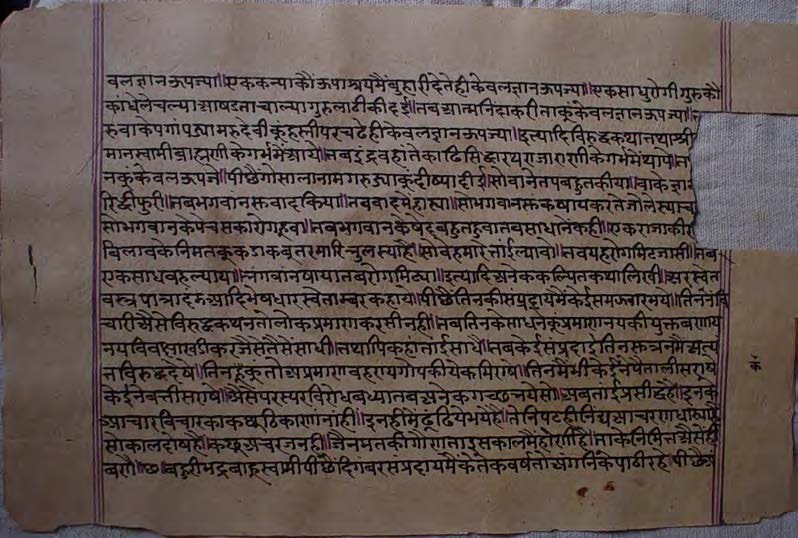 वलज्ञानऊपज्या॥एककन्याकौंऊपाश्रयमैंबुहारीदेतेहीकेवलज्ञानऊपज्या॥एकसाधुरोगीगुरुकौ
कांधेलेचल्याआषडताचाल्यागुरुलाठीकीदई॥तबआत्मनिंदाकरीताकूंकेवलज्ञानऊपज्या॥
रुवाकेपगांपड्यामरुदेवीकूंहस्तीपरचढेहीकेवलज्ञानऊपज्या॥इत्यादिविरुद्धकथातथाश्री
मानस्वामीब्राह्मणीकेगर्भमेंआये॥तबइंद्रवहांतेकाढिसिद्धारथराजाराणीकेगर्भमेंथापे॥
नकूंकेवलऊपजे॥पीछैंगोसालानामगरुड्याकूंदीष्यादीई॥सोवानेतपबहुतकीया॥वाकेज्ञा
रिद्धीफुरी॥तबभगवानंस्तवादकिया॥तबवादमेंहास्या॥सोभगवानस्तकषायकरतेजोलेस्याच
सोभगवानकेपेचसकारोगहूवा॥तबभगवानकेषेदबहुतहुवातबसाधांनेकही॥एकराजाकीरा
बिलावकेनिमतकूकडाकबूतरमारिचुलस्याहै॥सोवेहमारेतांईल्यावो॥तबयहरोगमिटजासी॥तब
एकसाधवहल्याया॥भगवांनषायातबरोगमिट्या॥इत्यादिअनेककल्पितकथालिखी॥अरस्वेत
वस्त्रपात्रादंडआदिभेषधारस्वेताम्बरकहाये॥पीछैंतिनकीसंप्रदायमैंकेईसमजवारभये॥तिननेंवि
चारीअैसेविरुद्धकथनतोलोकप्रमाणकरसीनही॥तबतिनकेसाधनेकूंप्रमाणनयकीयुक्तबणाय
नयविवक्षाखडीकरजैसेंतैसेंसाधी॥तथापिकहांतांईसाधै॥तबकेईसंप्रदाईतिनसूत्रनमैंअत्य
तविरुद्धदेषे॥तिनहूंकूतोअप्रमाणठहरायगोपकीयेकमिराषे॥तिनमेंभीकेईनेपैंतालीसराषे
केईनेबत्तीसराषे॥अैसेंपरस्परविरोधबध्यातबअनेकगच्छभयेसो॥अबतांईप्रसीद्धहै॥इनके
आचारविचारकाकछूठिकाणांनांही॥इनहीमेंढूंढियेभयेहै॥तेनिपटहीनिंद्यआचरणधास्याहै
सोकालदोषहै॥कछूअचरजनही॥जैनमतकीगोणताइसकालमैंहोणीहै॥ताकेनिमित्तअैसेही
बणै॥छ॥बहुरीभद्रबाहूस्वामीपीछैंदिगंबरसंप्रदायमैंकेतेकवर्षतोअंगनिकेपाठीरहे॥पीछैअं